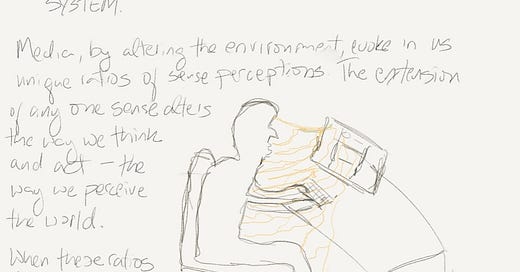 SYSTEM.
Media, by altering the environment, evoke in us
unique ratios of sense perceptions. The extension
of any one sense alters
the way we think
and act – the
way we perceive
the world.
When these ratios